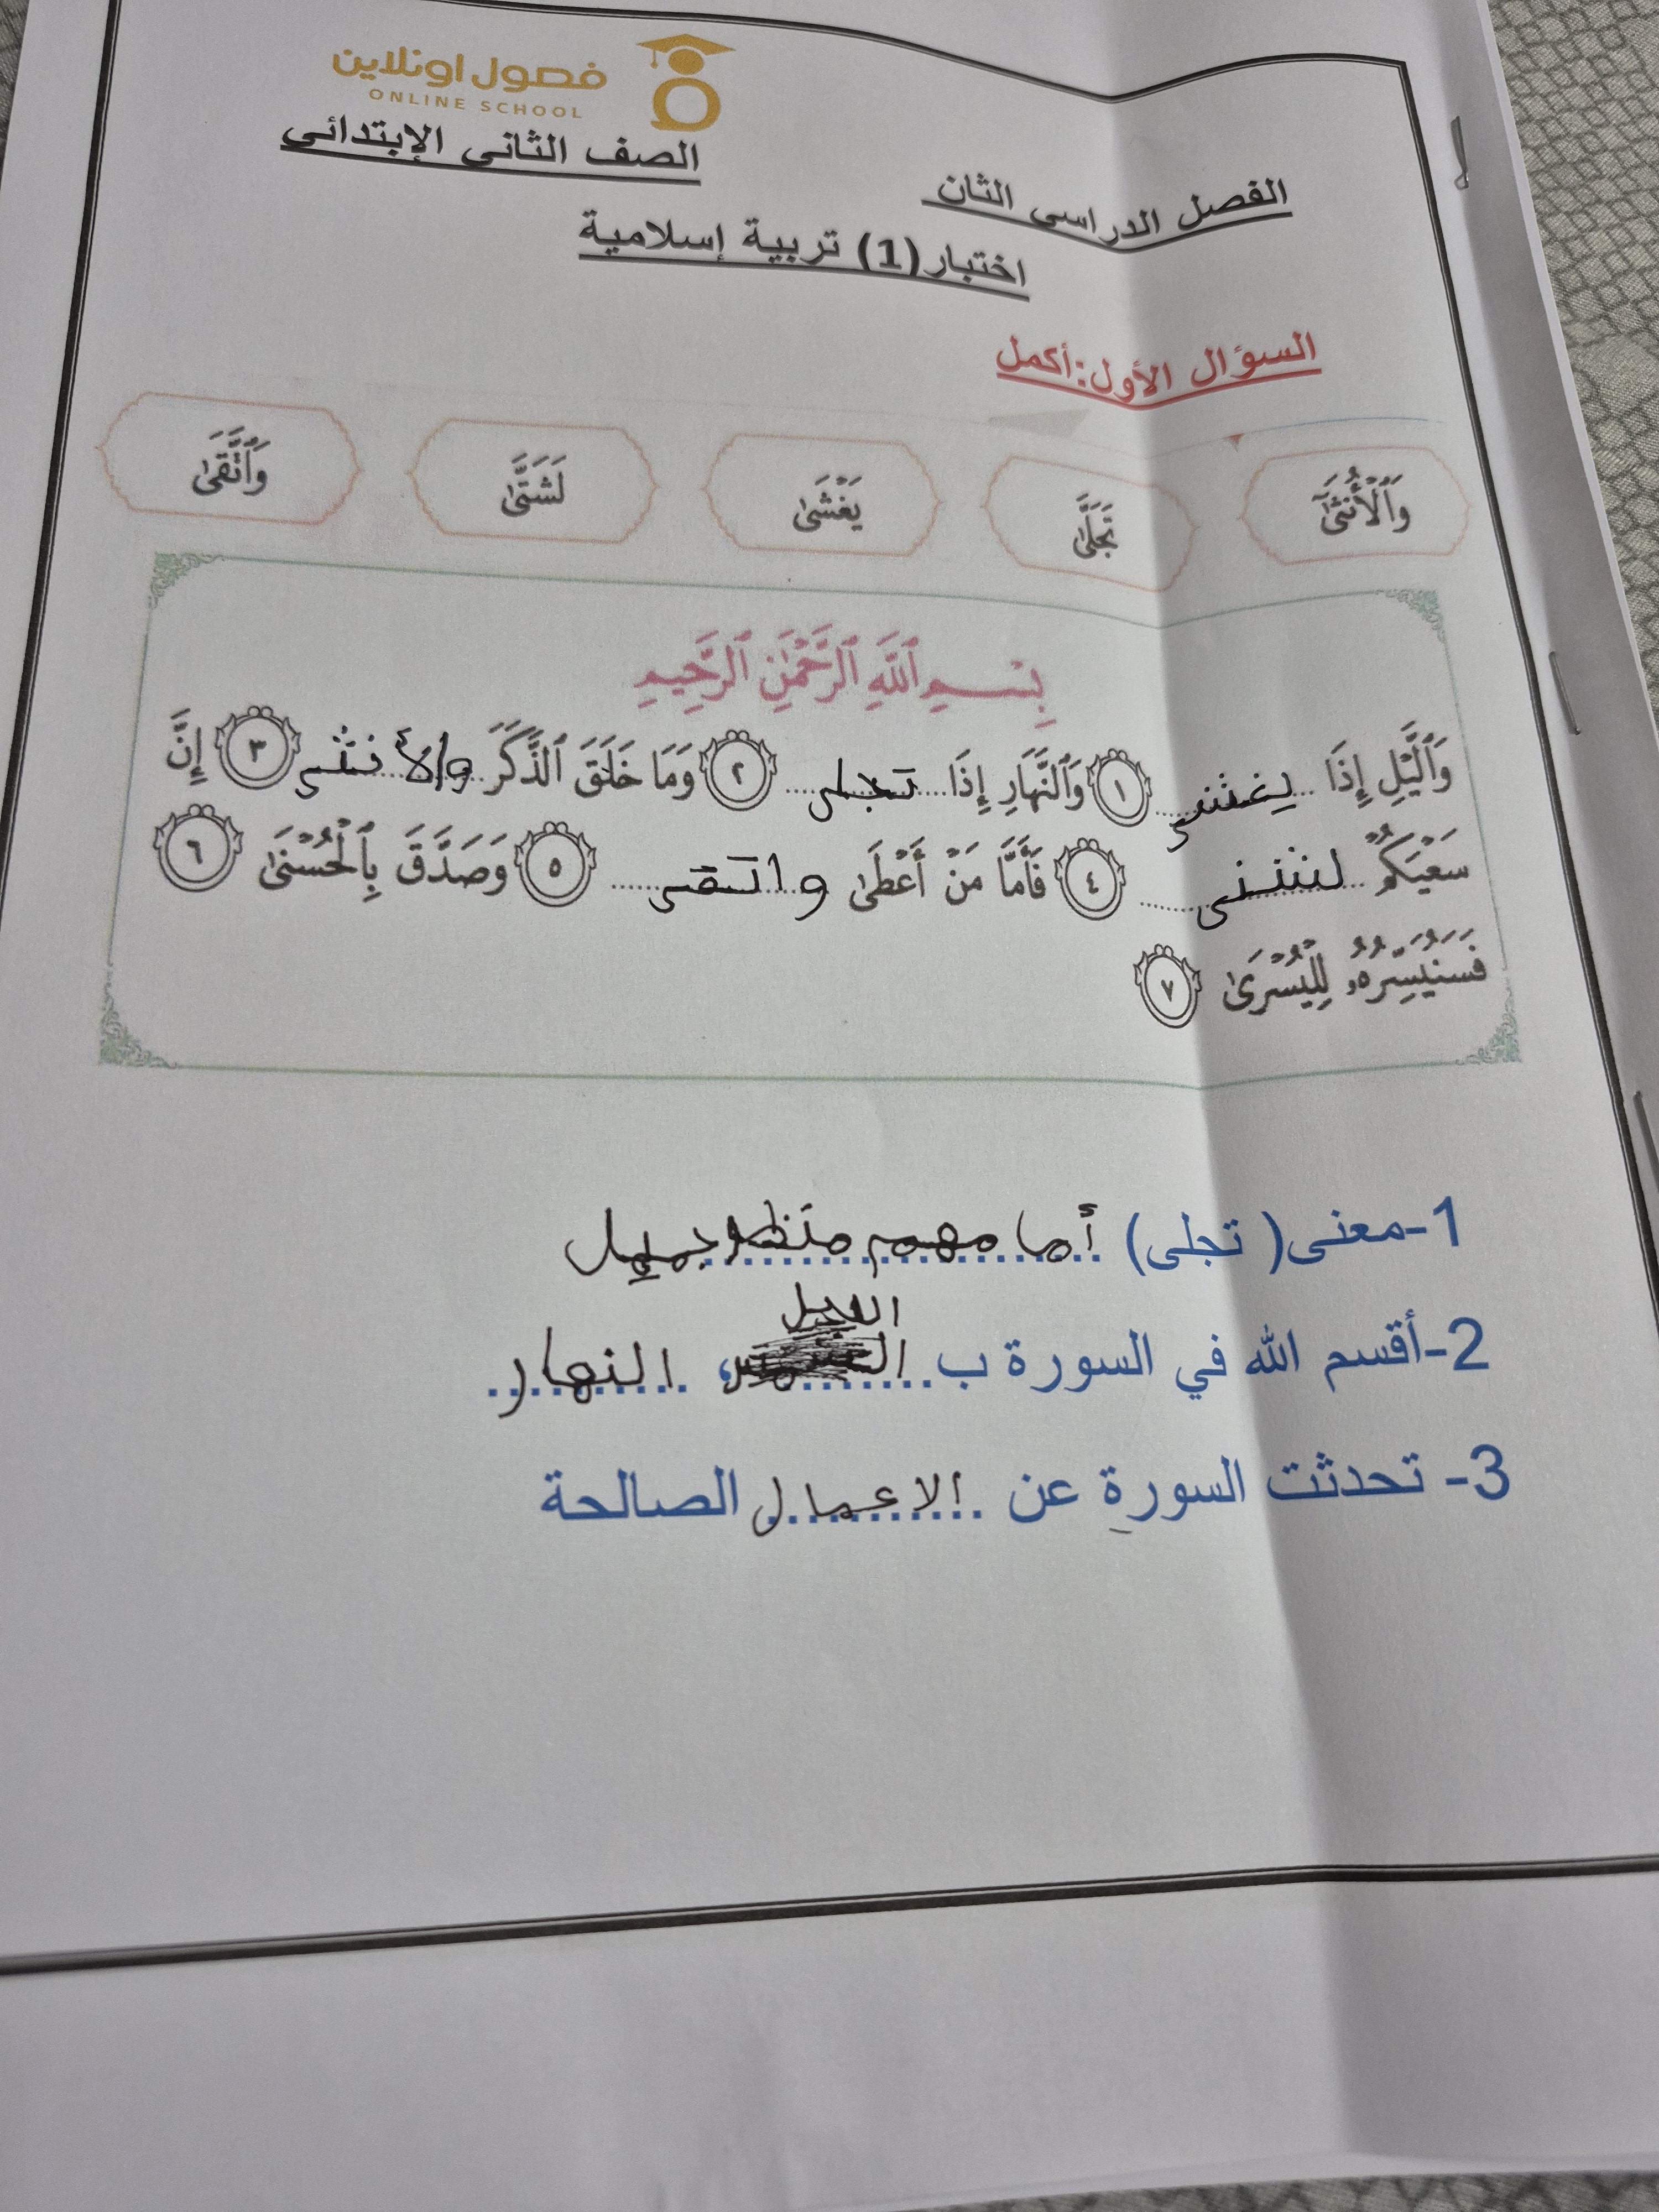 فصول اونلاين
ONLINE SCHOOL
الصف الثاني الإبتدائي
الفصل الدراسي الثان
اختبار(1) تربية إسلامية
السؤال الأول:أكمل
وَٱلْأُنثَىٰٓ تَجَلَّىٰ يَغْشَىٰ لَشَتَّىٰ وَٱتَّقَىٰ
بِسْمِ ٱللَّهِ ٱلرَّحْمَٰنِ ٱلرَّحِيمِ
وَٱلَّيْلِ إِذَا يغشى ١ وَٱلنَّهَارِ إِذَا تجلى ٢ وَمَا خَلَقَ ٱلذَّكَرَ والأنثى ٣ إِنَّ
سَعْيَكُمْ لشتى ٤ فَأَمَّا مَنْ أَعْطَىٰ واتقى ٥ وَصَدَّقَ بِٱلْحُسْنَىٰ ٦
فَسَنُيَسِّرُهُۥ لِلْيُسْرَىٰ ٧
1-معنى( تجلى) أما مهم منظر جميل
2-أقسم الله في السورة ب الليل، النهار
3- تحدثت السورة عن الاعمال الصالحة